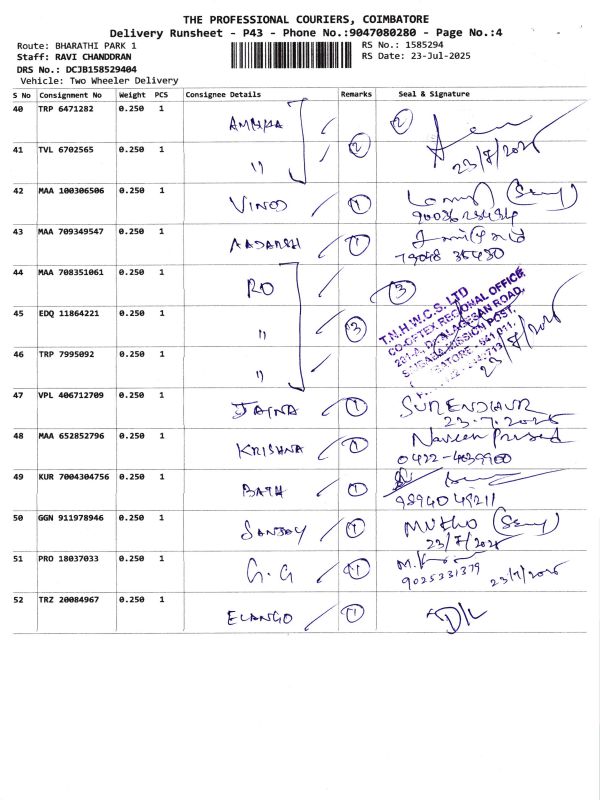 THE PROFESSIONAL COURIERS, COIMBATORE
Delivery Runsheet - P43 - Phone No.:9047080280 - Page No.:4
Route: BHARATHI PARK 1
RS No.: 1585294
Staff: RAVI CHANDDRAN
RS Date: 23-Jul-2025
DRS No.: DCJB158529404
Vehicle: Two Wheeler Delivery
S No Consignment No Weight PCS Consignee Details Remarks Seal & Signature
40 TRP 6471282 0.250 1 2
41 TVL 6702565 0.250 1 " 2 23/7/2025
42 MAA 100306506 0.250 1 VINOD 1
43 MAA 709349547 0.250 1 AADARSH 1
44 MAA 708351061 0.250 1 RO 3
45 EDQ 11864221 0.250 1 " 3
T.N.H.W.C.S. LTD
CO-OPTEX REGIONAL OFFICE
46 TRP 7995092 0.250 1 " 23/7/2025
47 VPL 406712709 0.250 1 JAINA 1 SURENDHUR
23.7.2025
48 MAA 652852796 0.250 1 KRISHNA 1 Naveen Prasad
0422-4039900
49 KUR 7004304756 0.250 1 BATH 1
9894049211
50 GGN 911978946 0.250 1 SANJAY 1 MUTHU
23/7/2025
51 PRO 18037033 0.250 1 G.G 1
9025331379 23/7/2025
52 TRZ 20084967 0.250 1 ELANGO 1